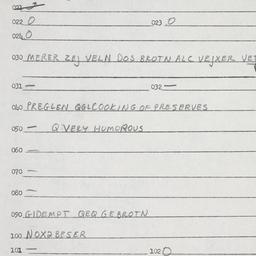 022 0 023 0
024 0
030 MERER ZEJ VELN DOS BROTN ALC VEJXER
031 — 032 —
040 PREGLEN QGLCOOKING OF PRESERVES
050 — Q VERY HUMOROUS
060 —
070 —
080 —
090 GIDEMPT QEQ GEBROTN
100 NOX2BESER
101 — 102 0